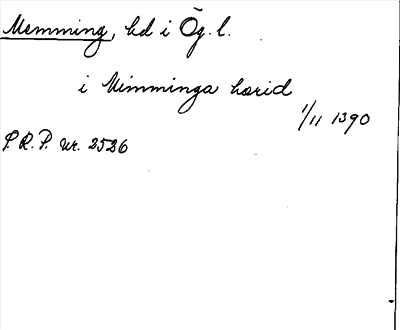 Memming, hd i Ög. l.
i Mimminga hærid
1/11 1390
S. R. P. nr. 2526